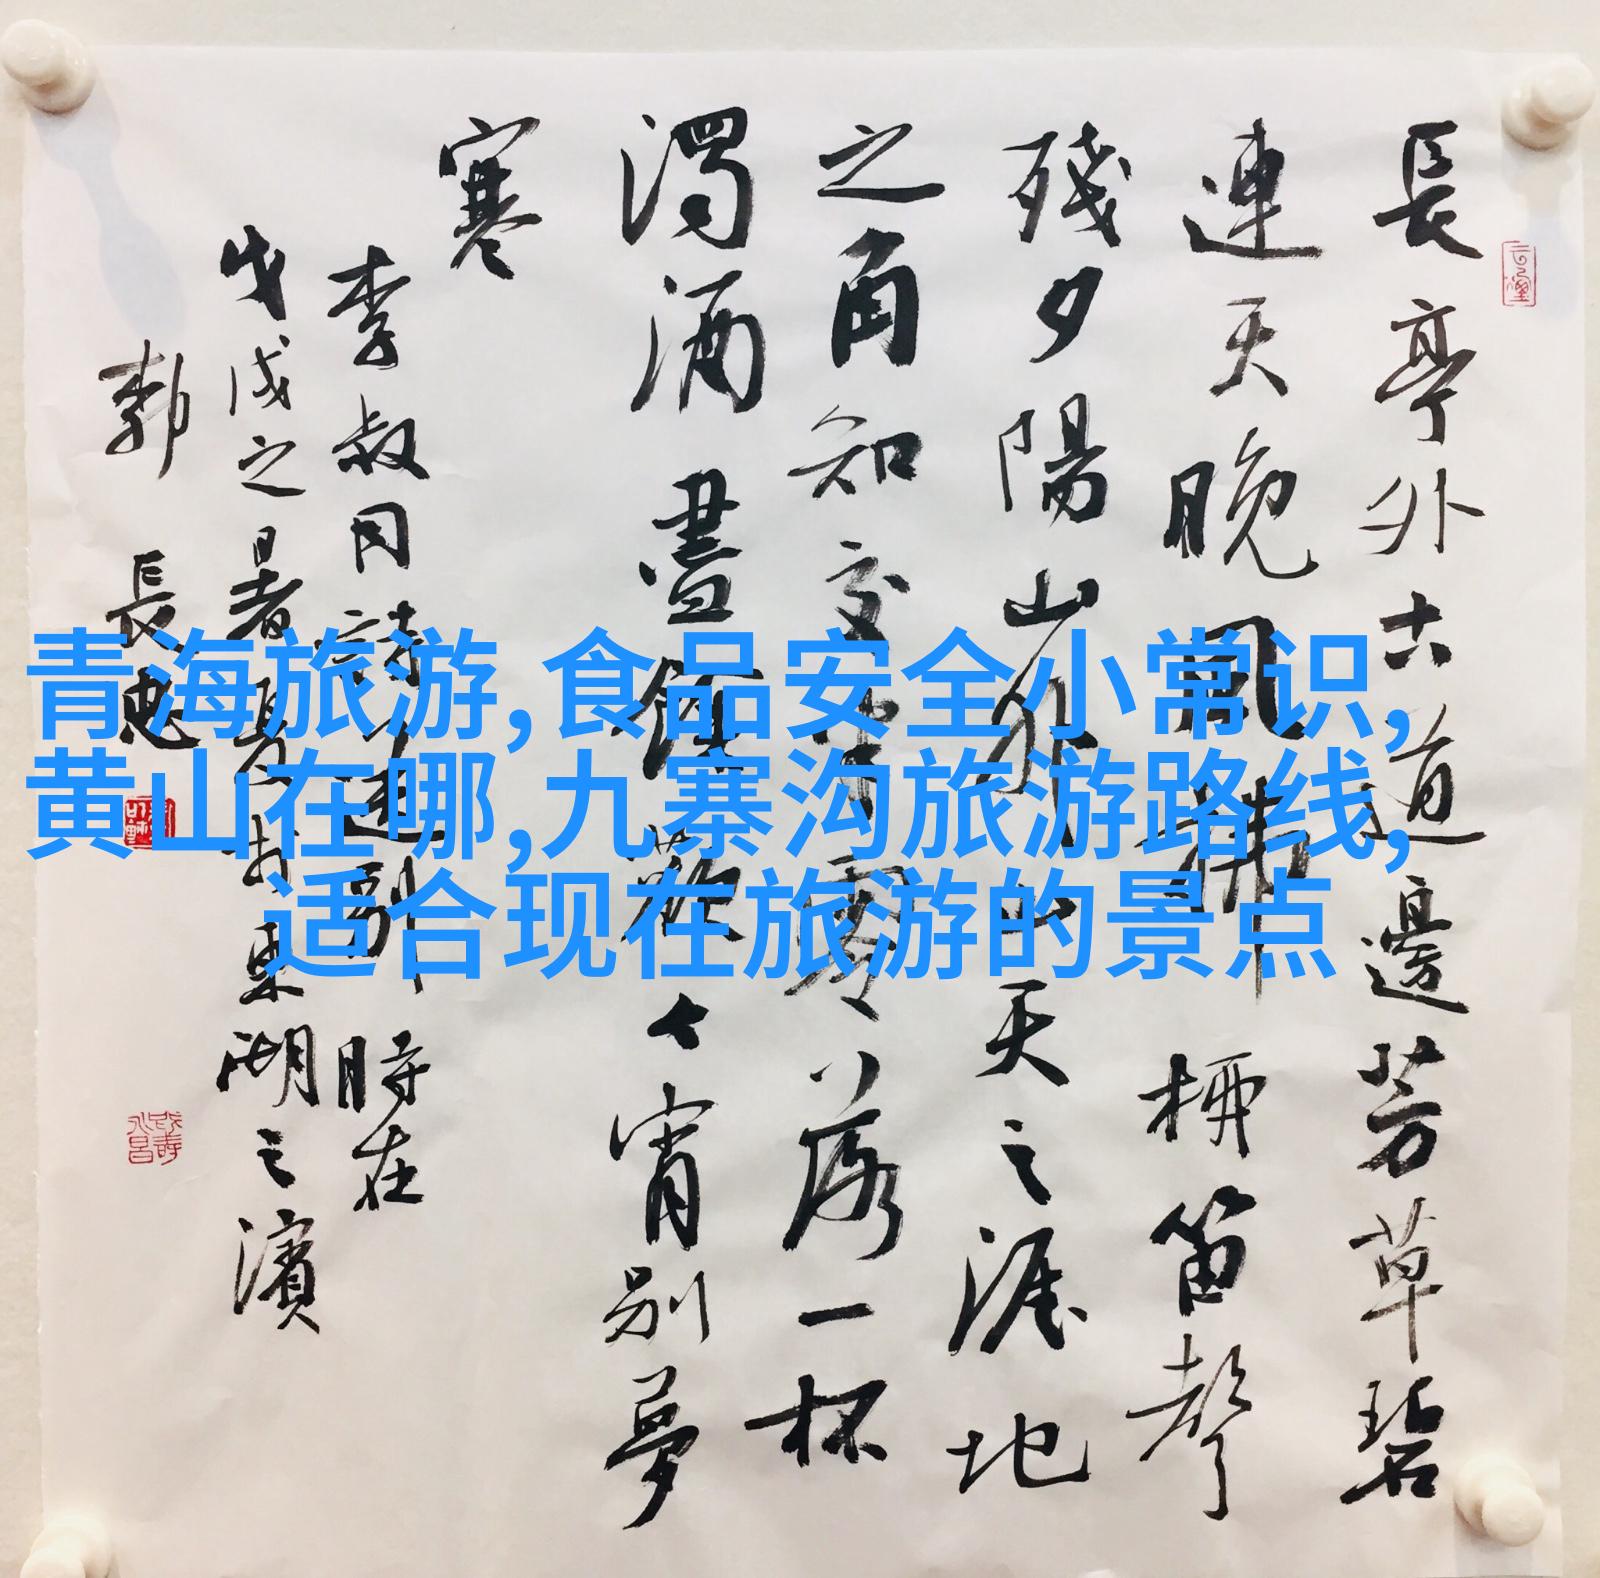 長亭外古道邊芳草碧
連天晚風拂柳笛聲
殘夕陽山外山天之涯地
之角知交半零落一杯
濁酒盡餘歡今宵別夢
寒
李叔同詩送別 時在
戊戌之暑夏於東湖之濱
郭長忠
青海旅游,食品安全小常识,
黄山在哪,九寨沟旅游路线,
适合现在旅游的景点